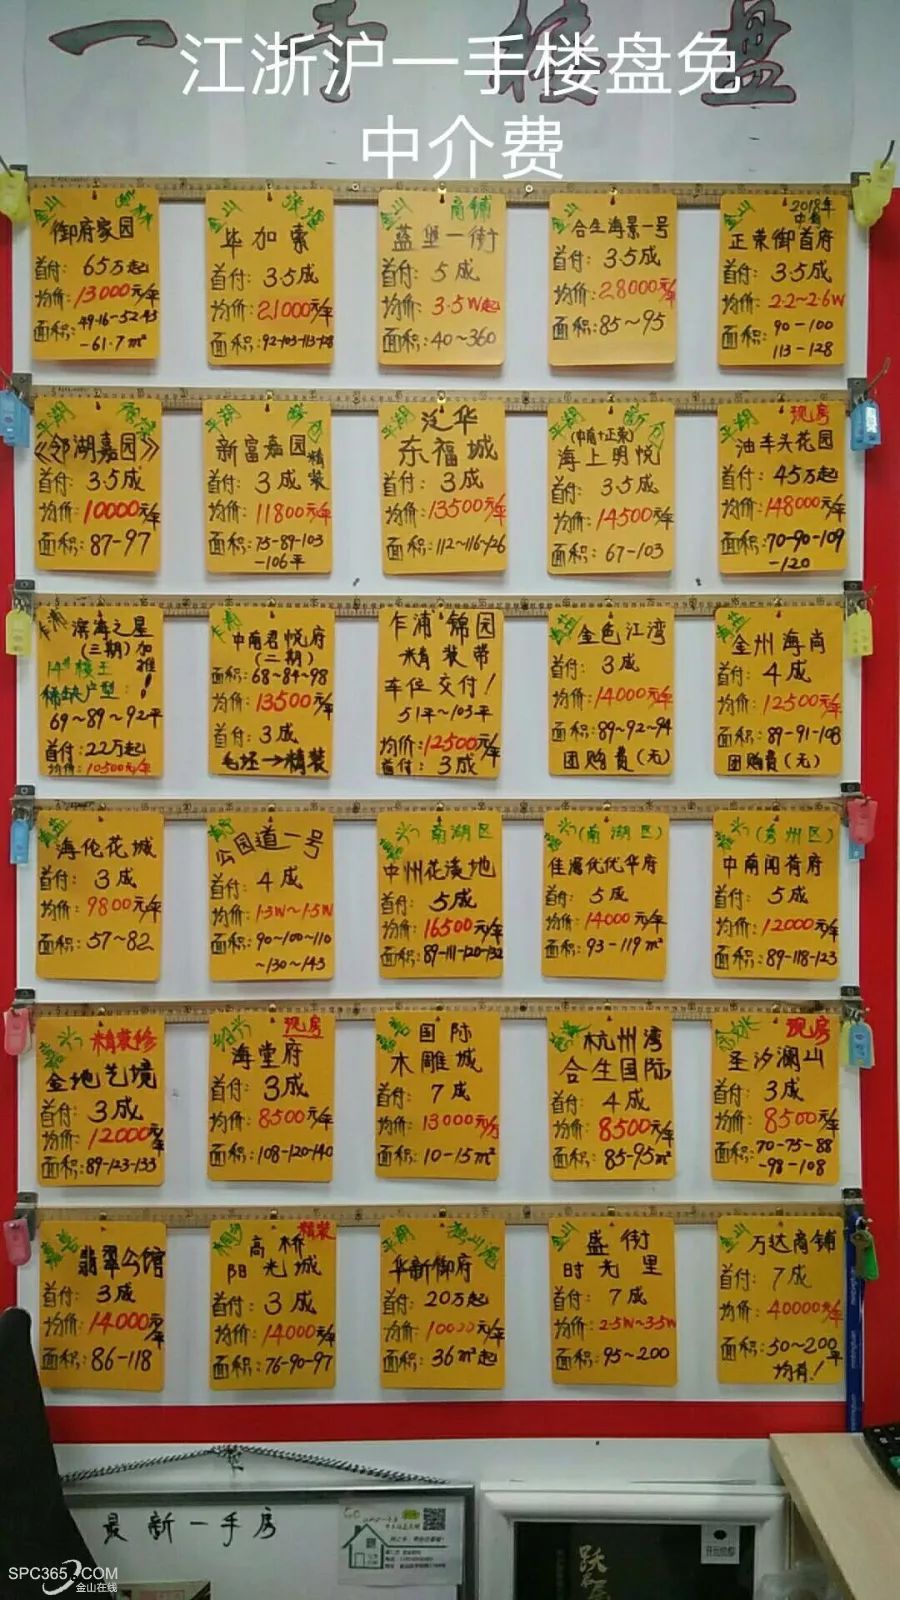 一手楼盘
江浙沪一手楼盘免
中介费
金山
御府家园
首付: 65万起
均价:13000元/平
面积:49.16-52.43
-61.7m²
金山
毕加索
首付: 3.5成
均价:21000元/平
面积:92-103-113-128
金山 商铺
蓝堡一街
首付: 5成
均价:3.5W起
面积:40~360
金山
合生海景一号
首付: 3.5成
均价:28000元/平
面积:85~95
金山 2018年
正荣御首府
首付: 3.5成
均价:2.2~2.6W
面积:90-100
113-128
平湖
《邻湖嘉园》
首付: 3.5成
均价:10000元/平
面积:87-97
平湖
新富嘉园精装
首付: 3成
均价:11800元/平
面积:75-89-103
-106平
平湖 泛华
东福城
首付: 3成
均价:13500元/平
面积:112~116~126
平湖 新仓
(中南+正荣)
海上明悦
首付: 3.5成
均价:14500元/平
面积: 67-103
平湖 现房
油车头花园
首付: 45万起
均价:148000元/平
面积:70-90-109
-120
乍浦 滨海之星
(三期)加推!
14#楼王
稀缺户型!
69~89~92平
首付:22万起
均价:10500元/平
乍浦
中南君悦府
(二期)
面积:68~84~98
均价:13500元/平
首付: 3成
毛坯→精装
乍浦锦园
精装带
车位交付!
51平~103平
均价:12500元/平
首付: 3成
海盐
金色江湾
首付: 3成
均价:14000元/平
面积:89~92~94
团购费(无)
海盐
金州海尚
首付: 4成
均价:12500元/平
面积:89-91-108
团购费(无)
海盐
海伦花城
首付: 3成
均价:9800元/平
面积:57~82
公园道一号
首付: 4成
均价:1.3W~1.5W
面积:90~100~110
~130~143
嘉兴 南湖区
中州花溪地
首付: 5成
均价:16500元/平
面积:89-111-120-132
嘉兴(南湖区)
佳源优优华府
首付: 5成
均价:14000元/平
面积:93-119m²
嘉兴(秀州区)
中南闻荷府
首付: 5成
均价:12000元/平
面积:89-118-123
嘉兴 精装修
金地艺境
首付: 3成
均价:12000元/平
面积:89-123-133
绍兴 现房
海棠府
首付: 3成
均价:8500元/平
面积:108-120-140
嘉善 国际
木雕城
首付: 7成
均价:13000元/方
面积:10-15m²
杭州湾
合生国际
首付: 4成
均价:8500元/平
面积:85-95m²
现房
圣汐澜山
首付: 3成
均价:8500元/平
面积:70-75-88
-98-108
嘉善
翡翠公馆
首付: 3成
均价:14000元/平
面积:86-118
桐乡 精装
高桥
阳光城
首付: 3成
均价:14000元/平
面积:76-90-97
平湖
华新御府
首付: 20万起
均价:10000元/平
面积:36m²起
金山 盛街
时光里
首付: 7成
均价:2.5W~3.5W
面积:95~200
金山 万达商铺
首付: 7成
均价:40000元/平
面积:50~200平
均有!
最新一手房
SPC365.COM
金山在线